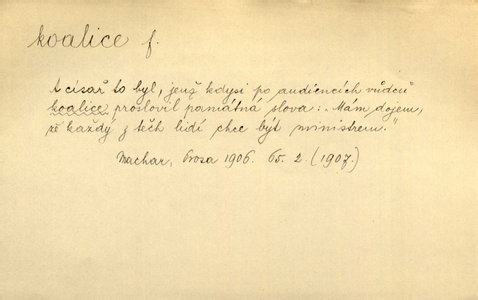 koalice f.
A císař to byl, jenž kdysi po audiencích vůdců
koalice proslovil památná slova: „Mám dojem,
že každý z těch lidí chce být ministrem."
Machar, Prosa 1906. 65. 2. (1907.)